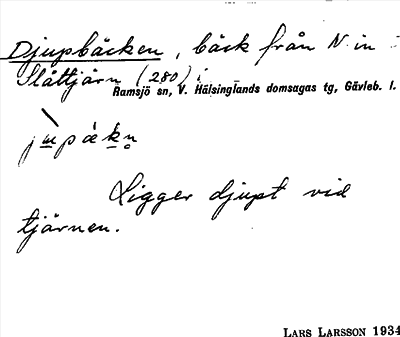 Djupbäcken, bäck från N in i
Slåttjärn (280) i
Ramsjö sn, V. Hälsinglands domsagas tg, Gävleb. l.
Ligger djupt vid
tjärnen.
LARS LARSSON 1934